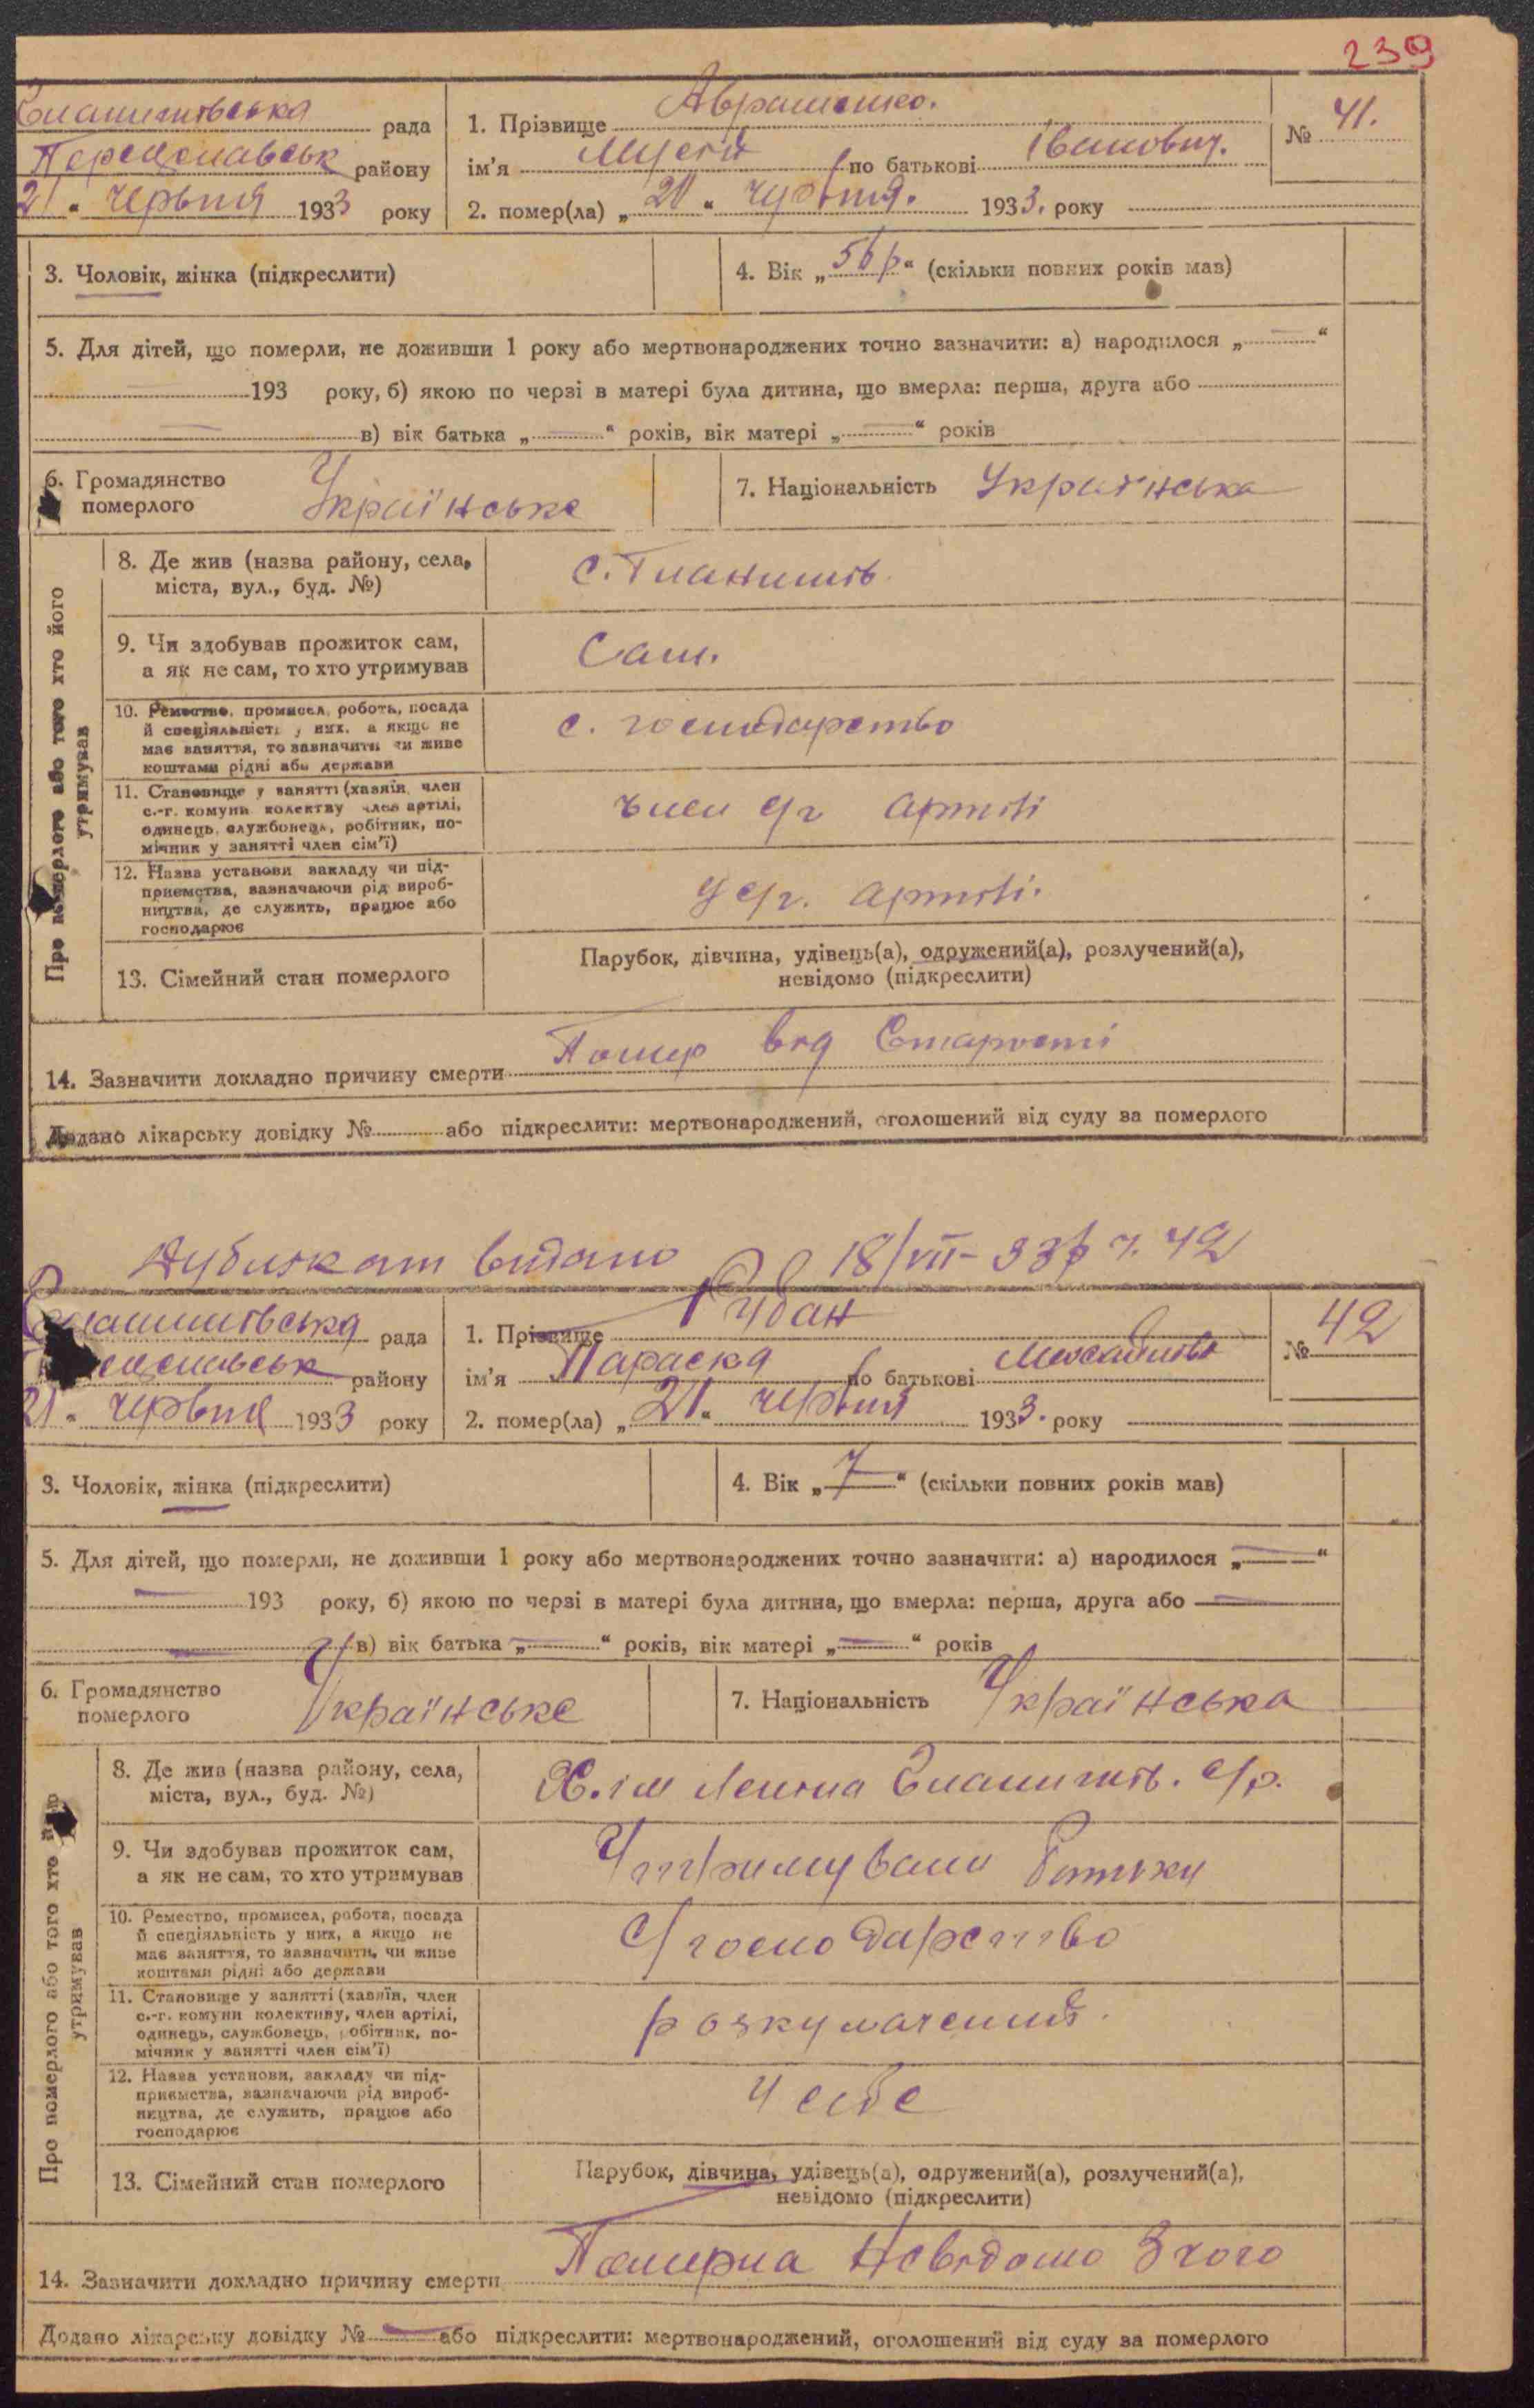 239
рада
Переяславськ району
21 " червня 1933 року
1. Прізвище Авраменко.
ім'я Мусій по батькові Іванович.
2. помер(ла) „ 21 " червня. 1933. року
№ 41.
3. Чоловік, жінка (підкреслити)
4. Вік „ 56 р " (скільки повних років мав)
5. Для дітей, що померли, не доживши 1 року або мертвонароджених точно зазначити: а) народилося „ — “
— 193 року, б) якою по черзі в матері була дитина, що вмерла: перша, друга або
— в) вік батька „ — “ років, вік матері „ — “ років
6. Громадянство
померлого Українське
7. Національність Українська
Про померлого або того хто його
утримував
8. Де жив (назва району, села,
міста, вул., буд. №)
с.
9. Чи здобував прожиток сам,
а як не сам, то хто утримував
Сам.
10. Ремество, промисел, робота, посада
й спеціяльність у них, а якщо не
має заняття, то зазначити чи живе
коштами рідні або держави
с. господарство
11. Становище у занятті (хазяїн, член
с.-г. комуни колективу член артілі,
одинець, службовець, робітник, по-
мічник у занятті член сім'ї)
член с/г артілі
12. Назва установи закладу чи під-
приємства, зазначаючи рід вироб-
ництва, де служить, працює або
господарює
У с/г. артілі.
13. Сімейний стан померлого
Парубок, дівчина, удівець(а), одружений(а), розлучений(а),
невідомо (підкреслити)
14. Зазначити докладно причину смерти Помер від Старості
Додано лікарську довідку № або підкреслити: мертвонароджений, оголошений від суду за померлого
Дублікат видано 18/VII- ч. 42
рада
району
21 " червня 1933 року
1. Прізвище Рибан
ім'я Параска по батькові
2. помер(ла) „ 21. " червня 1933. року
№ 42
3. Чоловік, жінка (підкреслити)
4. Вік „ 7 “ (скільки повних років мав)
5. Для дітей, що померли, не доживши 1 року або мертвонароджених точно зазначити: а) народилося „ — “
— 193 року, б) якою по черзі в матері була дитина, що вмерла: перша, друга або —
— в) вік батька „ — “ років, вік матері „ — “ років
6. Громадянство
померлого Українське
7. Національність Українська
Про померлого або того хто його
утримував
8. Де жив (назва району, села,
міста, вул., буд. №)
Х. ім Леніна с/р.
9. Чи здобував прожиток сам,
а як не сам, то хто утримував
Утримували Батьки
10. Ремество, промисел, робота, посада
й спеціяльність у них, а якщо не
має заняття, то зазначити, чи живе
коштами рідні або держави
С/господарство
11. Становище у занятті (хазяїн, член
с.-г. комуни колективу, член артілі,
одинець, службовець, робітник, по-
мічник у занятті член сім'ї)
розкулачений.
12. Назва установи, закладу чи під-
приємства, зазначаючи рід вироб-
ництва, де служить, працює або
господарює
У себе
13. Сімейний стан померлого
Парубок, дівчина, удівець(а), одружений(а), розлучений(а),
невідомо (підкреслити)
14. Зазначити докладно причину смерти Померла Невідомо З чого
Додано лікарську довідку № — або підкреслити: мертвонароджений, оголошений від суду за померлого